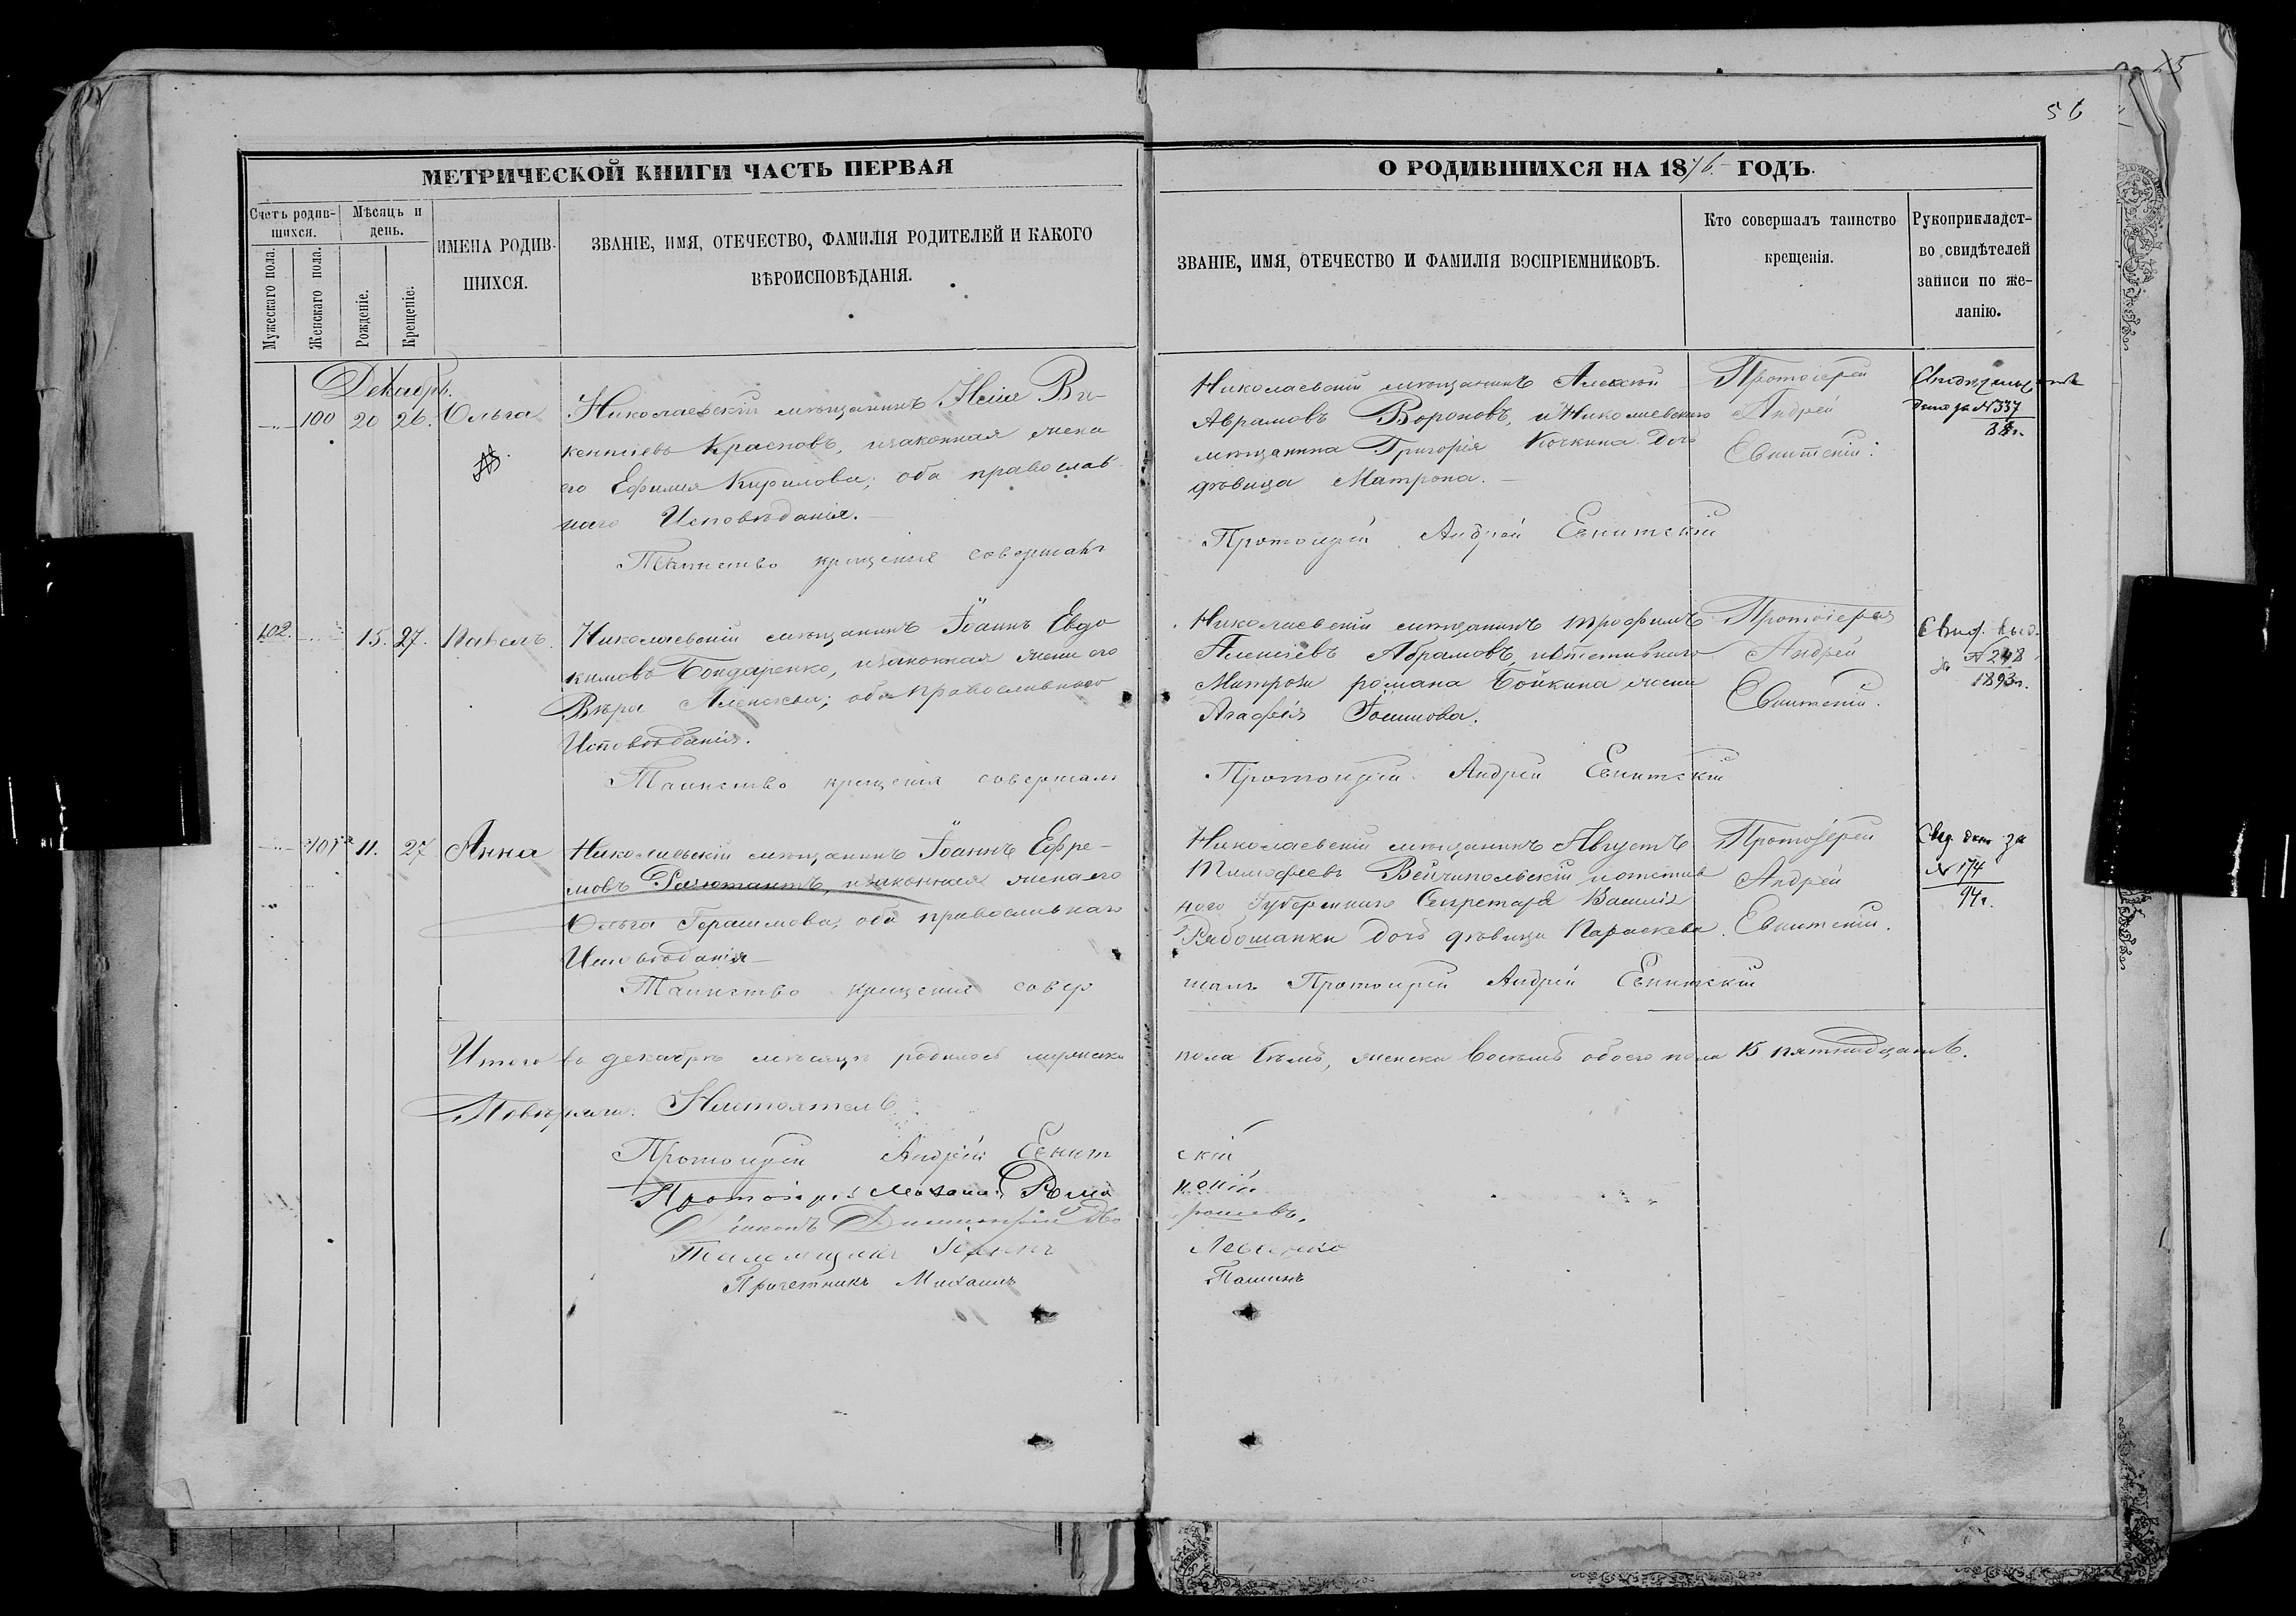 56
МЕТРИЧЕСКОЙ КНИГИ ЧАСТЬ ПЕРВАЯ
Счетъ родив-
шихся.
Мѣсяцъ и
день.
Мужескаго пола.
Женскаго пола.
Рожденіе.
Крещеніе.
ИМЕНА РОДИВ-
ШИХСЯ.
ЗВАНІЕ, ИМЯ, ОТЕЧЕСТВО, ФАМИЛІЯ РОДИТЕЛЕЙ И КАКОГО
ВѢРОИСПОВѢДАНІЯ.
О РОДИВШИХСЯ НА 1876 ГОДЪ.
ЗВАНІЕ, ИМЯ, ОТЕЧЕСТВО И ФАМИЛІЯ ВОСПРІЕМНИКОВЪ.
Кто совершалъ таинство
крещенія.
Рукоприкладст-
во свидѣтелей
записи по же-
ланію.
Декабрь.
100 20 26. Ольга
Николаевскій мѣщанинъ Ви-
кентіевъ Красновъ, изаконная жена
его Ефимія Кирилова; оба православ-
наго Исповѣданія.
Таинство крещенія совершалъ
Николаевскій мѣщанинъ Алексѣй
Аврамовъ Вороновъ, и Николаевскаго
мѣщанина Григорія Кочкина дочь
дѣвица Матрона.
Протоіерей Андрей Евнитскій
Протоіерей
Андрей
Евнитскій.
дано за №337
102. 15. 27. Павелъ.
Николаевскій мѣщанинъ Іоаннъ Евдо
кимовъ Бондаренко, изаконная жена его
Вѣра Алексѣева; оба православнаго
Исповѣданія.
Таинство крещенія совершалъ
Николаевскій мѣщанинъ Трофимъ
Алексѣевъ Абрамовъ, иотставнаго
Матроза романа Бойкина жена
Агафія Іоакимова.
Протоіерей Андрей Евнитскій
Протоіерей
Андрей
Евнитскій.
Свид. выд.
за №248
1893г.
101 11. 27 Анна
Николаевскій мѣщанинъ Іоаннъ Ефре-
мовъ изаконная жена его
Ольга Герасимова, оба православнаго
Исповѣданія
Таинство крещенія совер
Николаевскій мѣщанинъ Августъ
Тимофеевъ иотстав
ного Губернскаго Секретаря Василія
Рябошапки дочь дѣвица Параскева.
шалъ Протоіерей Андрей Евнитскій
Протоіерей
Андрей
Евнитскій.
Свид. дано за
№174
94г.
Итого въ декабрѣ мѣсяцѣ родилось мужеска
пола семь, женска восемь обоего пола 15 пятнадцать.
Повѣряли: Настоятель
Протоіерей Андрей Евнит
скій
Протоіерей Михаилъ Рома
нскій
Діаконъ Димитрій
Іоаннъ
Левченко
Причетникъ Михаилъ
Пашинъ